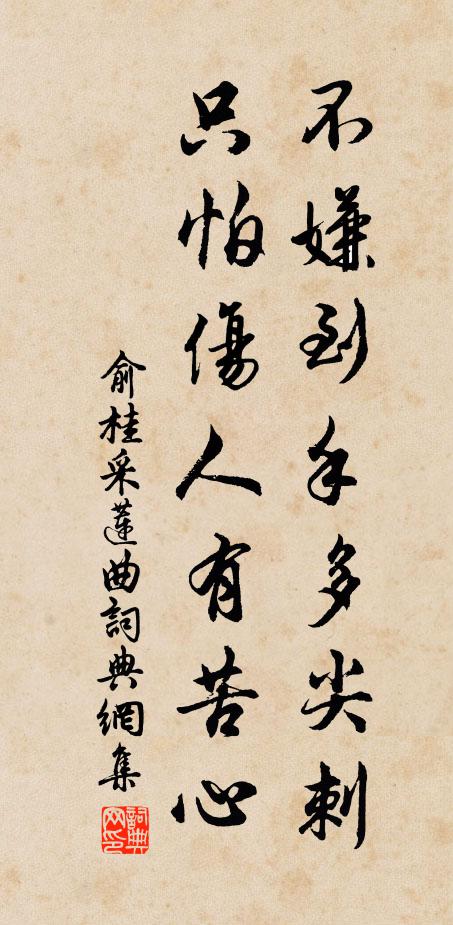 不嫌到手多尖刺
只怕傷人有苦心
俞桂采蓮曲詞典網集
詞典网印